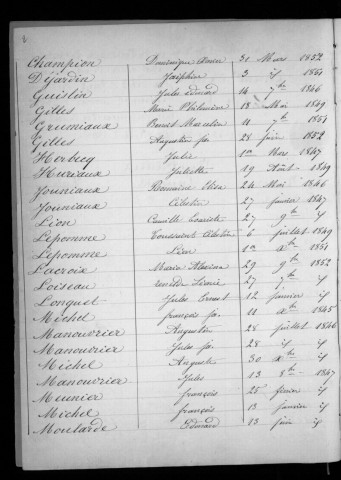 Champion Dominique Xavier 31 Mars 1852
Dejardin Josephine 3 id 1851
Guislin Jules Edmond 14 7bre 1846
Gilles Marie Philomène 18 Mai 1849
Grumiaux Benoit 11 7bre 1851
Gilles Augustin jh. 28 juin 1852
Herbecq Julie 1er Mars 1847
Huriaux Juliette 19 Août 1849
Jouniaux Romaine Elisa 24 Mai 1846
Jouniaux Célestin 27 février 1847
Lion Camille 27 9bre id
Lepomme Célestin 6 juillet 1849
Lepomme Léon 1er Xbre 1851
Lacroix Maria 29 9bre 1852
Loiseau Léonie 27 7bre id
Longuet Jules Ernest 12 janvier id
Michel françois jh. 11 Xbre 1845
Manouvrier Auguste 28 juillet 1846
Manouvrier Jules jh. 28 id id
Michel Auguste 30 Xbre id
Manouvrier Jules 13 8bre 1847
Meunier françois 25 février id
Michel françois 13 janvier id
Moutarde Edouard 13 juin id